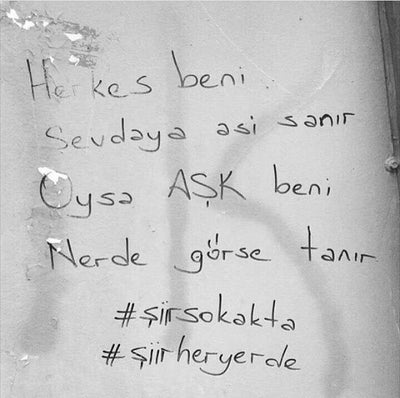 Herkes beni
Sevdaya asi sanır
Oysa AŞK beni
Nerde görse tanır
#şiirsokakta
#şiirheryerde